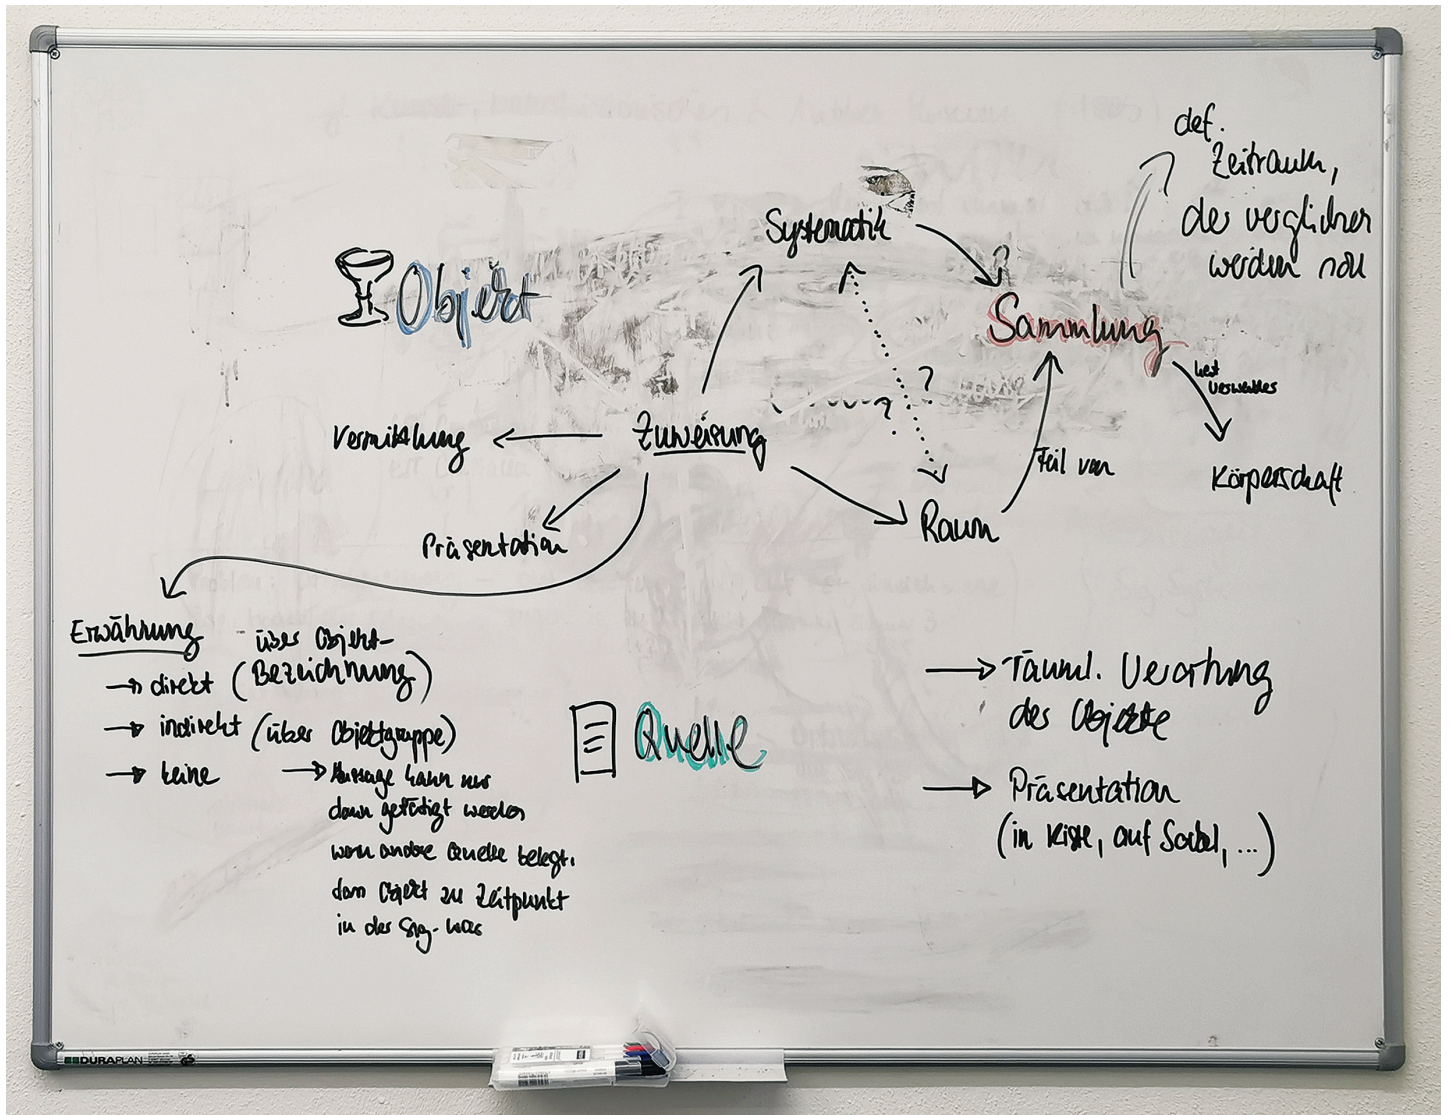 def.
Zeitraum,
der verglichen
werden soll
Systematik
?
Sammlung
Objekt
?
Vermittlung
Zuweisung
Teil von
Körperschaft
Raum
Präsentation
Erwähnung
über Objekt-
→ direkt (Bezeichnung)
→ indirekt (über Objektgruppe)
→ keine
→ Aussage kann nur
dann getätigt werden
wenn andere Quelle belegt,
dass Objekt zu Zeitpunkt
in der Slg. war
Quelle
→ räuml. Verortung
der Objekte
→ Präsentation
(in Kiste, auf Sockel, ...)
DURAPLAN